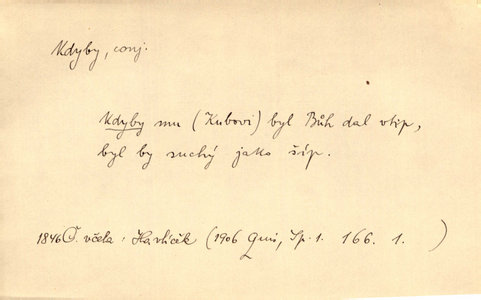 Kdyby, conj.
Kdyby mu (Kubovi) byl Bůh dal vtip,
byl by suchý jako šíp.
1846 Č. včela, Havlíček (1906 Quis, Sp. 1. 166. 1. )